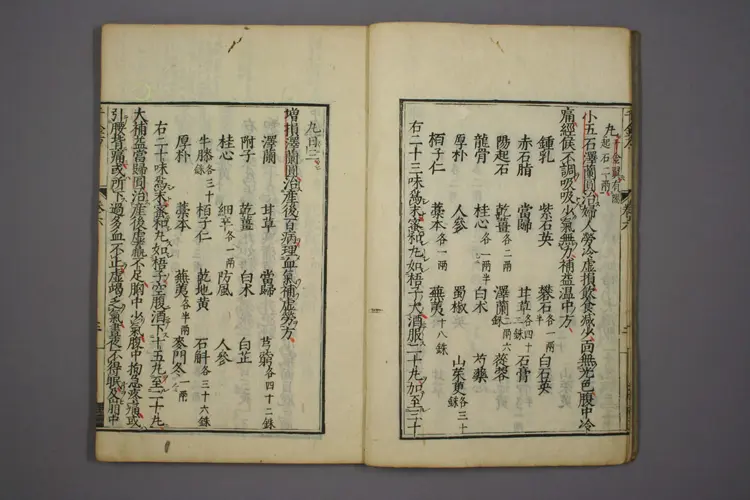 丸 千金翼有陽起石二兩
小五石澤蘭圓治婦人勞冷虛損飲食減少面無光色腹中冷
痛經候不調吸吸少氣無力補益溫中方
鍾乳 紫石英 礬石各一兩半 白石英
赤石脂 當歸 甘草各四十二銖 石膏
陽起石 乾薑各二兩 澤蘭二兩六銖 蓯蓉
龍骨 桂心各一兩半 白朮 芍藥
厚朴 人參 蜀椒 山茱萸各三十銖
栢子仁 藁本各一兩 蕪荑十八銖
右二十三味爲末蜜和丸如梧子大酒服二十丸加至三十
丸日三
增損澤蘭圓治產後百病理血氣補虛勞方
澤蘭 甘草 當歸 芎藭各四十二銖
附子 乾薑 白朮 白芷
桂心 細辛各一兩 防風 人參
牛膝各三十銖 栢子仁 乾地黃 石斛各三十六銖
厚朴 藁本 蕪荑各半兩 麥門冬二兩
右二十味爲末蜜和丸如梧子空腹酒下十五丸至二十丸
大補益當歸圓治產後虛羸不足胸中少氣腹中拘急疼痛或
引腰背痛或所下過多血不止虛竭乏氣晝夜不得眠及崩中